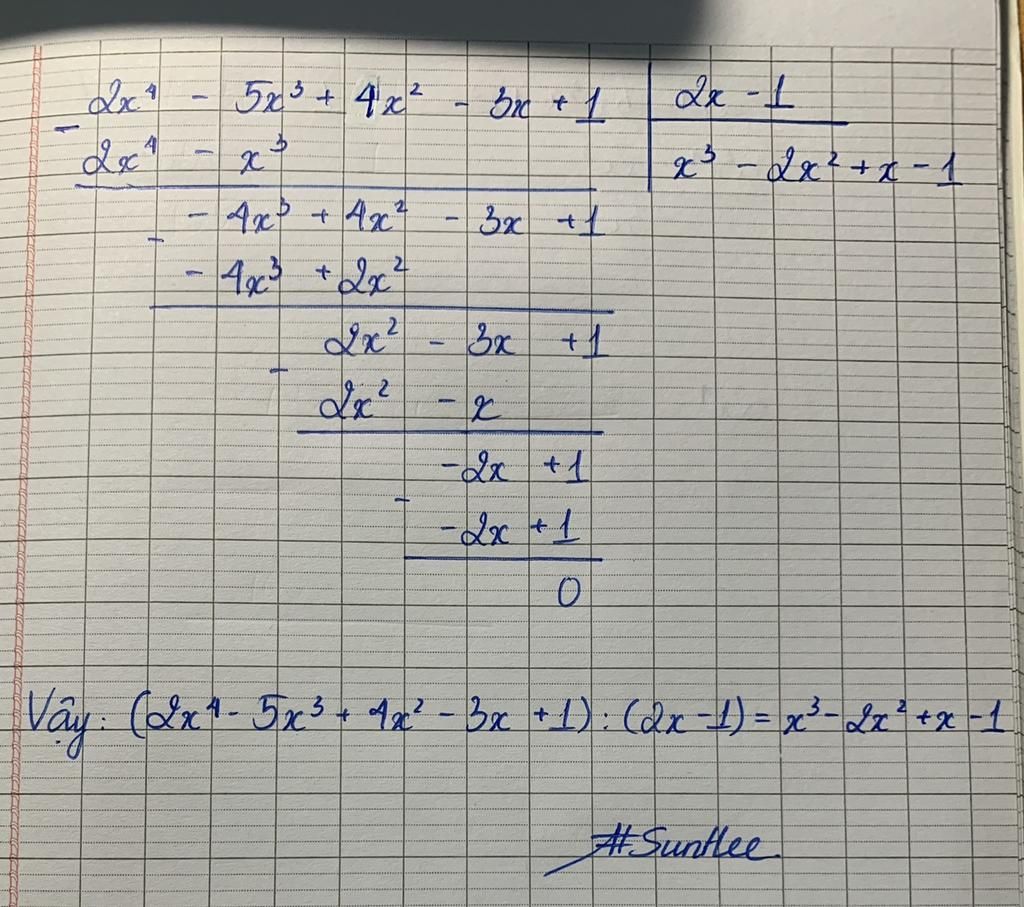 2x⁴ - 5x³ + 4x² - 3x + 1 | 2x - 1
- 2x⁴ - x³ | x³ - 2x² + x - 1
- 4x³ + 4x² - 3x + 1
- - 4x³ + 2x²
2x² - 3x + 1
- 2x² - x
-2x + 1
- -2x + 1
0
Vậy: (2x⁴ - 5x³ + 4x² - 3x + 1) : (2x - 1) = x³ - 2x² + x - 1
#SunHee